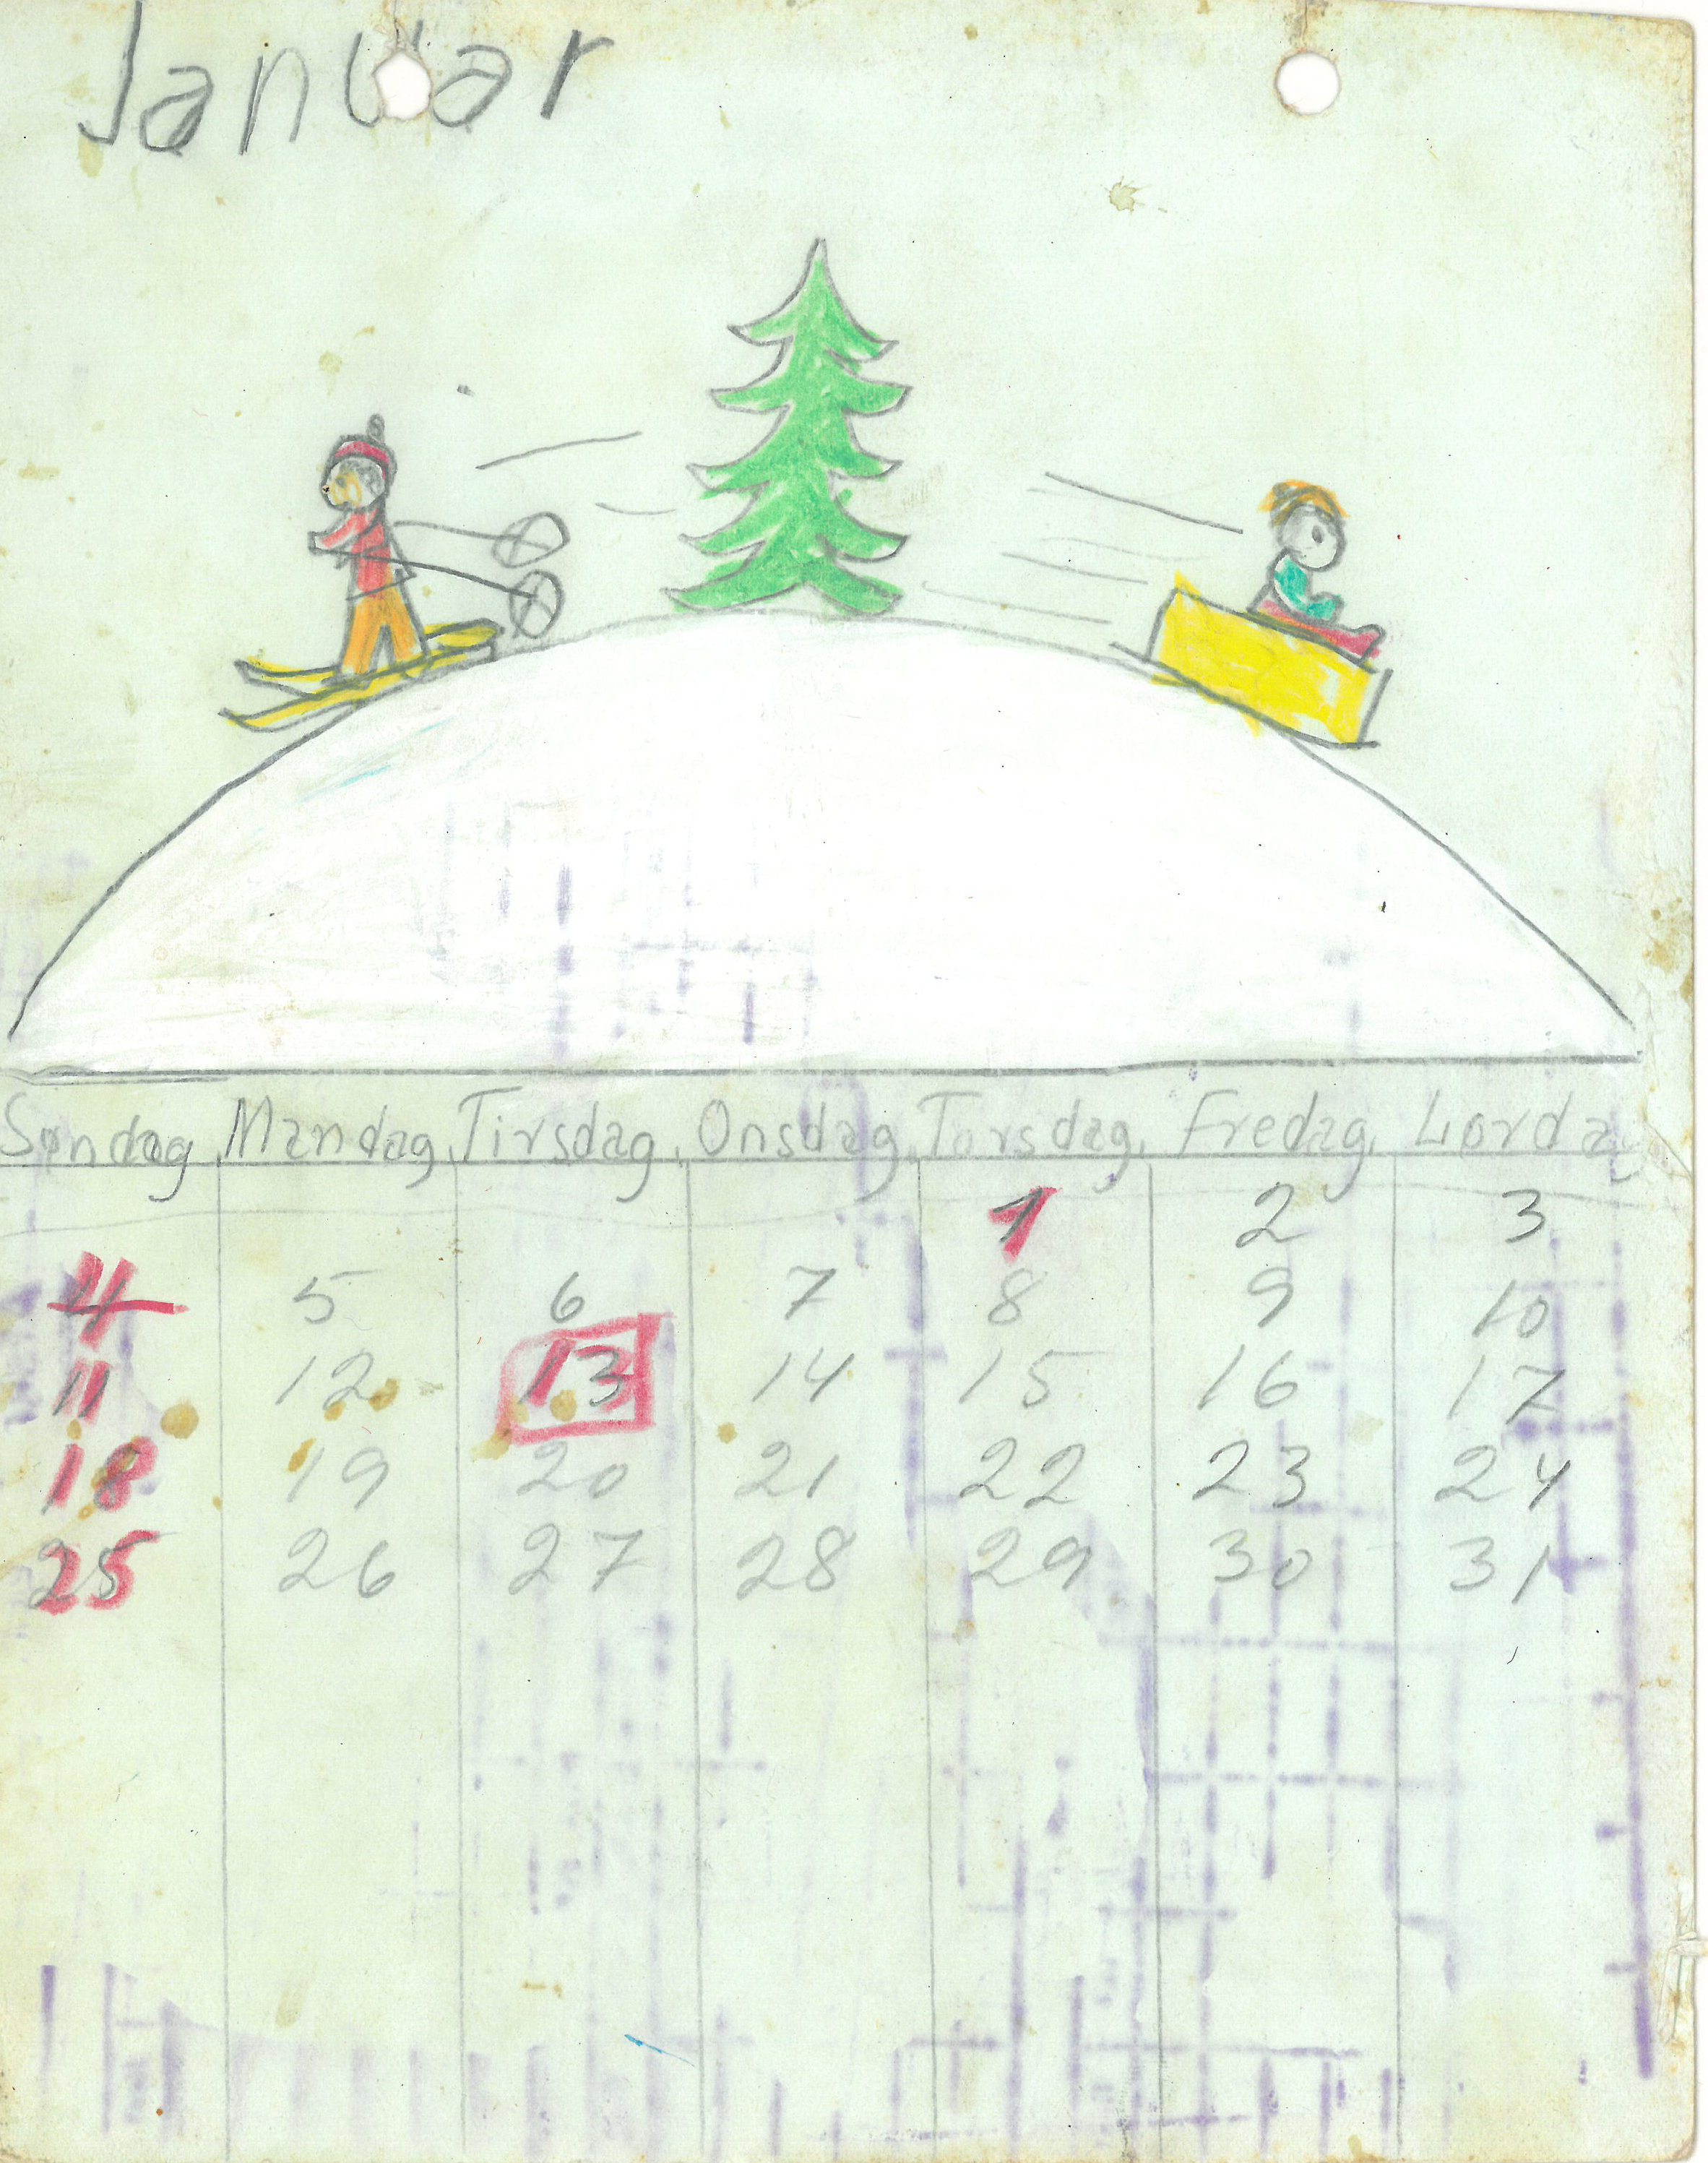 Januar
Søndag Mandag Tirsdag Onsdag Torsdag Fredag Lørdag
1 2 3
4 5 6 7 8 9 10
11 12 13 14 15 16 17
18 19 20 21 22 23 24
25 26 27 28 29 30 31